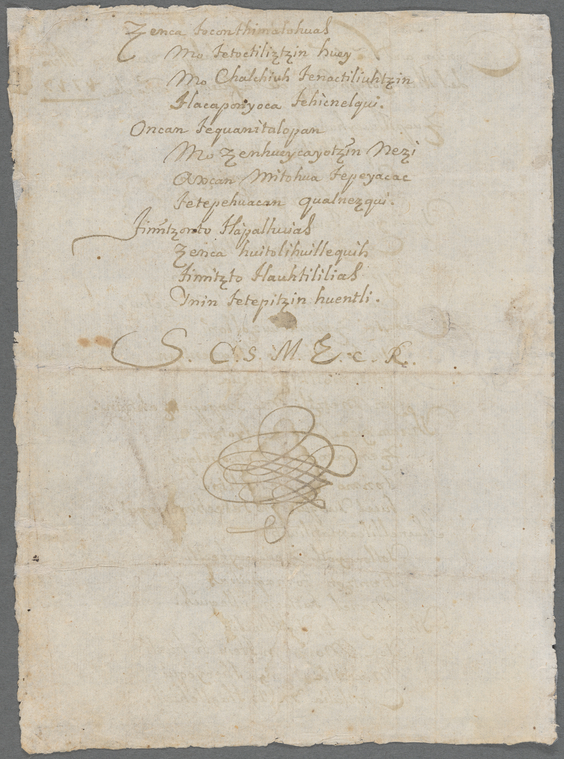 Zenca toconthimatohuas
Mo Tetoctiliztzin huey
Mo Chalchiuh Tenactiliuhtzin
Tlacaponyoca Tehicnelqui.
Oncan Tequanitalopan
Mo Zenhueycayotzin Nezi
Axcan Mitohua Tepeyacac
Tetepehuacan qualnezqui.
Timitzonto Tlapalhuias
Zenca huitolihuillequih
Timitzto Tlauhtililias
Ynin Tetepitzin huentli.
S. C. S. M. E. c. R.